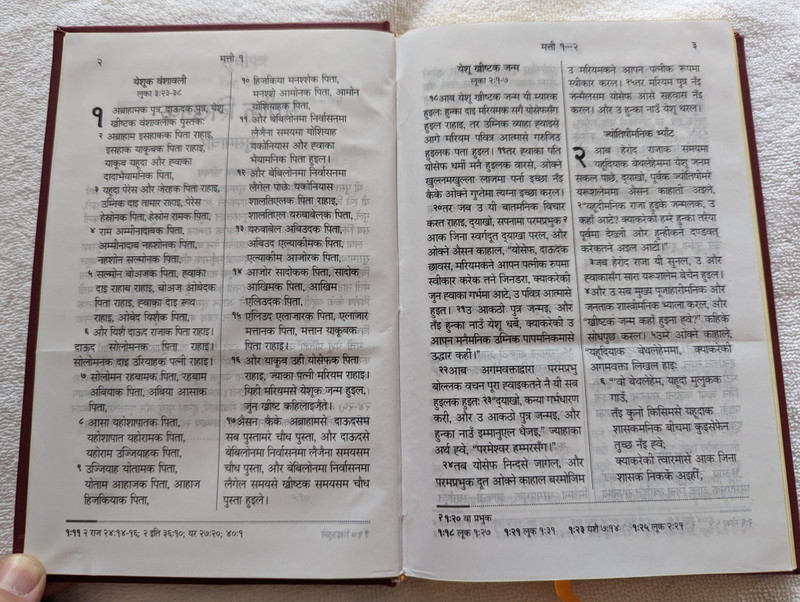 २
मत्ती १
येशूक वंशावली
लूका ३:२३-३८
१ अब्राहामक पुत्र, दाऊदक पुत्र, येशू
ख्रीष्टक वंशावलीक पुस्तकः
२ अब्राहाम इसहाकक पिता राहाइ,
इसहाक याकूबक पिता राहाइ,
याकूब यहूदा और ह्वाका
दादाभैयामनिक पिता,
३ यहूदा पेरेस और जेरहक पिता राहाइ,
उम्निक दाइ तामार राहाइ, पेरेस
हेस्रोनक पिता, हेस्रोन रामक पिता,
४ राम अम्मीनादाबक पिता,
अम्मीनादाब नहशोनक पिता,
नहशोन सल्मोनक पिता,
५ सल्मोन बोअजक पिता, ह्वाका
दाइ राहाब राहाइ, बोअज ओबेदक
पिता राहाइ, ह्वाका दाइ रूथ
राहाइ, ओबेद यिशैक पिता,
६ और यिशै दाऊद राजाक पिता राहाइ।
दाऊद सोलोमनक पिता राहाइ।
सोलोमनक दाइ उरियाहक पत्नी राहाइ।
७ सोलोमन रहबामक पिता, रहबाम
अबियाक पिता, अबिया आसाक
पिता,
८ आसा यहोशापातक पिता,
यहोशापात यहोरामक पिता,
यहोराम उज्जियाहक पिता,
९ उज्जियाह योतामक पिता,
योताम आहाजक पिता, आहाज
हिजकियाक पिता,
१० हिजकिया मनश्शेक पिता,
मनश्शे आमोनक पिता, आमोन
योशियाहक पिता,
११ और बेबिलोनमा निर्वासनमा
लैजैना समयमा योशियाह
यकोनियास और ह्वाका
भैयामनिक पिता हुइल।
१२ और बेबिलोनमा निर्वासनमा
लैगेल पाछेः यकोनियास
शालतिएलक पिता राहाइ,
शालतिएल यरुबाबेलक पिता,
१३ यरुबाबेल अबिउदक पिता,
अबिउद एल्याकीमक पिता,
एल्याकीम आजोरक पिता,
१४ आजोर सादोकक पिता, सादोक
आखिमक पिता, आखिम
एलिउदक पिता,
१५ एलिउद एलाजारक पिता, एलाजार
मत्तानक पिता, मत्तान याकूबक
पिता राहाइ।
१६ और याकूब उही योसेफक पिता
राहाइ, ज्याका पत्नी मरियम राहाइ।
यिही मरियमसे येशूक जन्म हुइल,
जुन ख्रीष्ट कहिलाइजैते।
१७ऐसन कैके अब्राहामसे दाऊदसम
सब पुस्तामरे चौध पुस्ता, और दाऊदसे
बेबिलोनमा निर्वासनमा लैजैना समयसम
चौध पुस्ता, और बेबिलोनमा निर्वासनमा
लैगेल समयसे ख्रीष्टक समयसम चौध
पुस्ता हुइले।
१:११ २ राज २४:१४-१६; २ इति ३६:१०; यर २७:२०; ४०:१
मत्ती १–२
३
येशू ख्रीष्टक जन्म
लूका २:१-७
१८आब येशू ख्रीष्टक जन्म यी म्यारक
हुइलः हुन्का दाइ मरियमक सगैं योसेफसँग
हुइल राहाइ, तर उम्निक व्याहा ह्वाइसे
आगे मरियम पवित्र आत्मासे गरुजिउ
हुइलक पता हुइल। १९तर ह्वाका पति
योसेफ धर्मी मनै हुइलक वारसे, ओक्ने
खुल्लमखुल्ला लाजमा पर्ना इच्छा नैं
कैके ओक्ने गुप्तेमा त्यग्ना इच्छा करल।
२०तर जब उ यी बातमनिक बिचार
करत राहाइ, द्याखो, सपनामा परमप्रभुक?
आक जिना स्वर्गदूत द्याखा परल, और
ओक्ने अैसन काहाल, “योसेफ, दाऊदक
छावस, मरियमक्ने आपन पत्नीक रुपमा
स्वीकार करेक तने जिनडरा, क्याकरेकी
जुन ह्वाका गर्भमा आटे, उ पवित्र आत्मासे
हुइत। २१उ आकठो पुत्र जन्मइ, और
तँइ हुन्का नाउँ येशू धर्बे, क्याकरेकी उ
आपन मनैमनिक उम्निक पापमनिकमासे
उद्धार कही।”
२२आब अगमवक्ताद्वारा परमप्रभु
बोल्लक वचन पूरा ह्वाइकतने नै यौ सब
हुइलक हुइतः २३“द्याखो, कन्या गर्भधारण
करी, और उ आकठो पुत्र जन्मइ, और
हुन्का नाउँ इम्मानुएल धेजइ,” ज्याहाका
अर्थ ह्वे, “परमेश्वर हम्मरसँग।”
२४तब योसेफ निन्दसे जागल, और
परमप्रभुक दूत ओक्ने काहाल बरमोजिम
उ मरियमक्ने आपने पत्नीक रूपमा
स्वीकार करल। २५तर मरियम पुत्र नँइ
जन्मैलसम योसेफ ओंसे सहवास नँइ
करल। और उ हुन्का नाउँ येशू धरल।
ज्योतिषीमनिक भ्याँट
२ आब हेरोद राजाक समयमा
यहूदियाक बेथलेहेममा येशू जनम
सकल पाछे, द्याखो, पूर्वक ज्योतिषीमरे
यरूशलेममा अैसन काहातो अइले,
२“यहूदीमनिक राजा हुइके जन्मलक, उ
कहाँ आटे? क्याकरेकी हम्रे हुन्का तरैया
पूर्वमा देख्ली और हुन्हीकने दण्डवत्
करेकतने अइल आटी।”
३जब हेरोद राजा यी सुनल, उ और
ह्वाकासँग सारा यरूशलेम बेचेन हुइल।
४और उ सब मुख्य पूजाहारीमनिक और
जनताक शास्त्रीमनिक भ्याला करल, और
ख्रीष्टक जन्म कहाँ हुइना ह्वे?” कहिके
सोधपुछ करल। ५उम्रे ओक्ने काहाले,
“यहूदियाक बेथलेहेममा, क्याकरेकी
अगमवक्ता लिखल हाइः
६ “‘वो बेथलेहेम, यहूदा मुलुकक
गाउँ,
तँइ कुनो किसिमसे यहूदाक
शासकमनिक बीचमा कुइसेफेन
तुच्छ नँइ ह्वे,
क्याकरेकी त्वारमासे आक जिना
शासक निकर्के अइहीं,
१:२० वा प्रभुक
१:१८ लूक १:२७ १:२१ लूक १:३१ १:२३ यशै ७:१४ १:२५ लूक २:२१